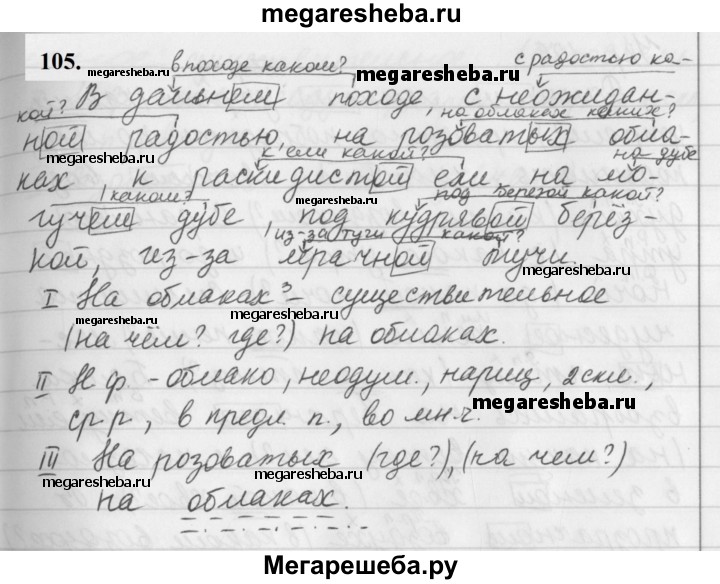 megaresheba.ru
105.
в походе каком? с радостью ка-
megaresheba.ru megaresheba.ru
кой? В дальнем походе, с неожидан-
на облаках каких?
ной радостью, на розоватых обла-
megaresheba.ru к ели какой? megaresheba.ru на дубе
ках к раскидистой ели на мо-
каком? megaresheba.ru под берёзой какой?
гучем дубе под кудрявой берёз-
из-за тучи какой?
кой, из-за мрачной тучи.
megaresheba.ru megaresheba.ru
I На облаках? - существительное
megaresheba.ru megaresheba.ru
(на чём? где?) на облаках.
II Н.ф. - облако, неодуш., нариц, 2скл.,
megaresheba.ru
ср.р., в предл. п., во мн.ч.
III На розоватых (где?), (на чем?)
megaresheba.ru
на облаках.
Мегарешеба.ру